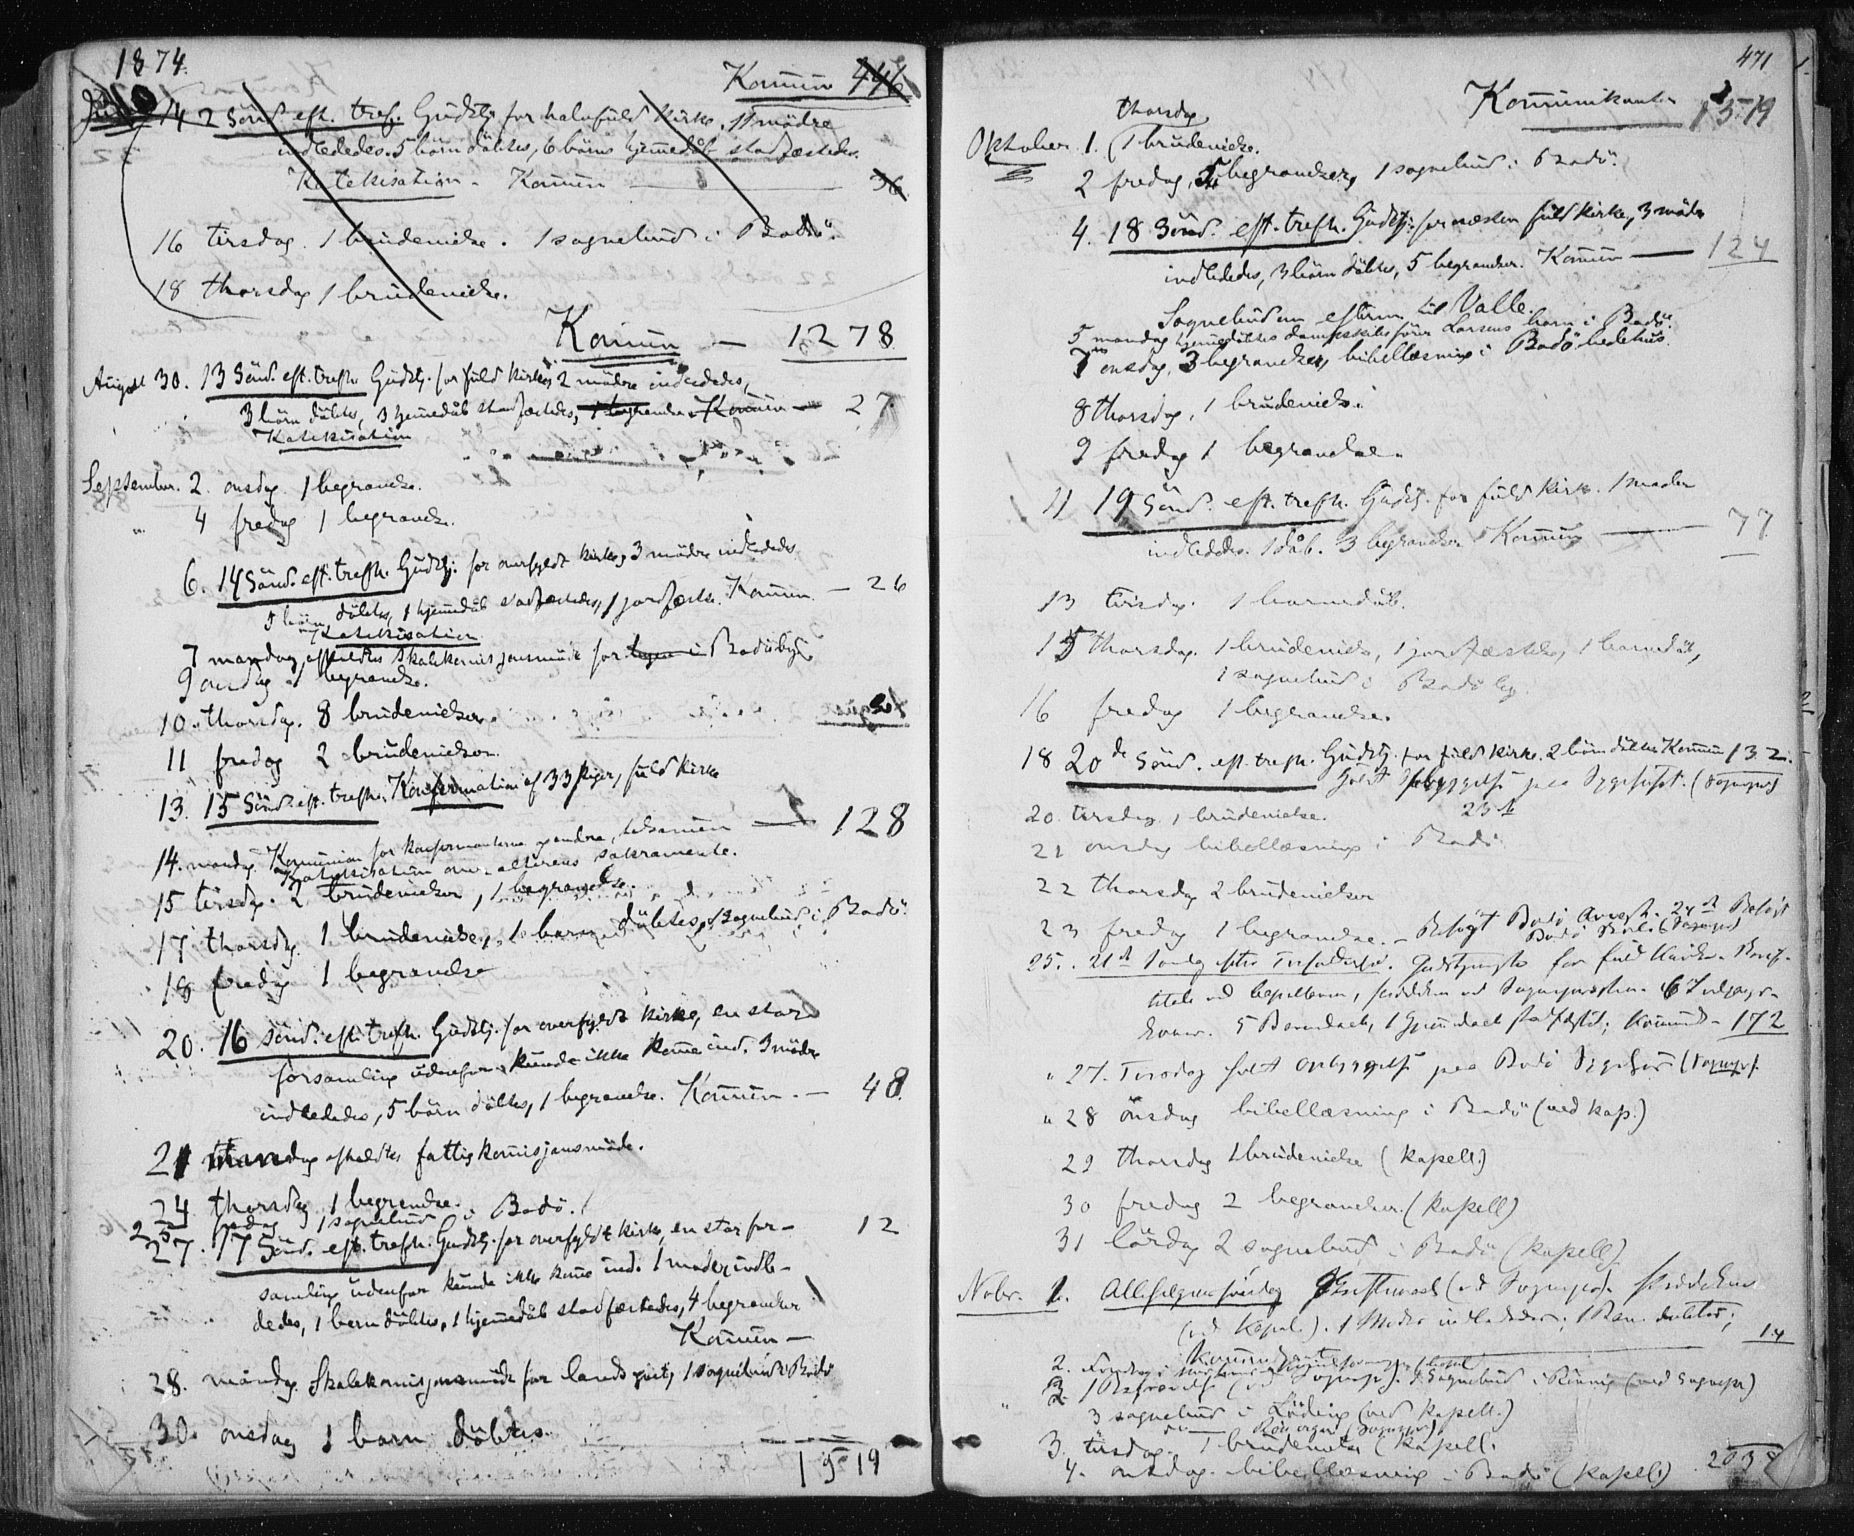 1874.
Komūn 446
14 2 Sönd. eft. tref. Gūdstj. for halvfūld kirke, 11 mödre
indlededes. 5 börn döbtes, 6 börns hjemmedåb stadfæstedes.
Katekisation - Komūn — 36
16 tirsdag. 1 brūdevielse. 1 sognebūd i Bodö.
18 thorsdag 1 brūdevielse.
Komūn — 1278
Aūgūst 30. 13 Sönd. eft. trefh. Gūdstj. for fūld kirke, 2 mödre indlededes,
3 börn döbtes, 3 hjemmedåb stadfæstedes, 1 begravelse. Komūn — 27
Katekisation
September. 2. onsdag. 1 begravelse.
" 4 fredag 1 begravelse.
6. 14 Sönd. eft. trefh. Gūdstj. for overfyldt kirke, 3 mödre indlededes.
5 börn döbtes, 1 hjemmedåb stadfæstedes, 1 jordfæstelse. Komūn. — 26
Katekisation.
7 mandag, afholdtes skolekomisjonsmöde for Bodö by.
9 onsdag 1 begravelse.
10. thorsdag. 8 brūdevielser.
11 fredag 2 brūdevielser.
13. 15 Sönd. eft. trefh. Konfirmation af 33 piger, fūld kirke
14. mandag. Komūnion for konfirmanterne og andre, tilsammen — 128
Katekisation over alterens sakramente.
15 tirsdag. 2 brūdevielser, 1 begravelse.
17 thorsdag 1 brūdevielse, 1 barn döbtes, 1 sognebūd i Bodö.
18 fredag 1 begravelse
20. 16 sönd. eft. trefh. Gūdstj. for overfyldt kirke, en stor
forsamling ūdenfor kūnde ikke kome ind. 3 mödre
indlededes, 5 börn döbtes, 1 begravelse. Komūn. — 48.
21 mandag afholdtes fattigkomisjonsmöde.
24 thorsdag 1 begravelse.
25 fredag 1 sognebūd i Bodö.
27. 17 Sönd. eft. trefh. Gūdstj. for overfyldt kirke, en stor for- 12
samling ūdenfor kūnde ikke kome ind. 1 moder indle-
dedes, 1 barn döbtes, 1 hjemmedåb stadfæstedes, 4 begravelser
Komūn —
28. mandag. Skolekomisjonsmöde for landsognet, 1 sognebūd i Bodö
30. onsdag 1 barn döbtes.
1519
471
Komūnikanter 1519
Oktober 1. thorsdag. 1 brūdevielse.
2 fredag, begravelser, 1 sognebūd i Bodö.
4. 18 Sönd. eft. trefh. Gūdstj. for næsten fūld kirke, 3 mödre
indlededes, 3 börn döbtes, 5 begravelser. Komūn — 124
Sognebūd om efterm. til Valle.
5 mandag hjemmedöbtes dampskibsförer Larsens barn i Bodö.
7 onsdag, 3 begravelser, bibellæsning i Bodö bedehūs.
8 thorsdag. 1 brūdevielse.
9 fredag 1 begravelse.
11 19 Sönd. eft. trefh. Gūdstj. for fūld kirke. 1 moder
indlededes. 1 dåb. 3 begravelser Komūn — 77
13 tirsdag. 1 barnedåb.
15 thorsdag. 1 brūdevielse, 1 jordfæstelse, 1 barnedåb,
1 sognebūd i Bodö by.
16 fredag 1 begravelse.
18 20de Sönd. eft. trefh. Gūdstj. for fūld kirke. 2 börn döbtes Komūn 132.
holdt Opbyggelse paa Sygehūset. (Sognepr)
20. tirsdag. 1 brūdevielse.
21 onsdag bibellæsning i Bodö.
22 thorsdag 2 brūdevielser
23 fredag 1 begravelse. - Besögt Bodö 24de Besögt
Bodö (Sognepr)
25. 21de Söndag efter Trefoldighed. Gudstjeneste for fuld Kirke.
ved Capellanen, ved Sognepræsten. 6
5 Barnedaab, 1 Hjemmedaab stadfæstet; Komunik - 172
" 27. Tirsdag holdt Opbyggelse paa Bodö Sygehus (Sognepr).
" 28 onsdag bibellæsning i Bodö (ved kap.)
29 thorsdag 1 brūdevielse (kapell.)
30 fredag 2 begravelser (kapell)
31 lördag 2 sognebūd i Bodö (kapell).
Novbr. 1. Allehelgens söndag (ved Sognepr).
(ved Kapel.). 1 Moder indlededes; 1 Barn döbtes; 14
2.
3 sognebūd i Löding (ved kapell.)
3. tirsdag. 1 brūdevielse (kapell.
4. onsdag. bibellæsning i Bodö (kapell.) 2038